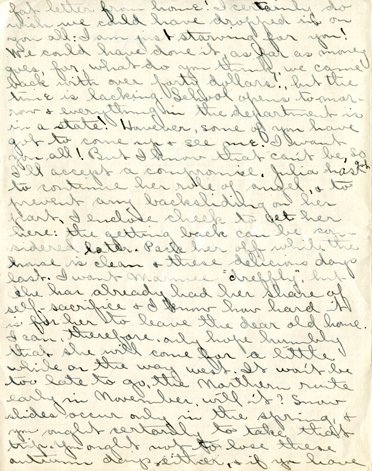 but better from home! I certainly do
wish we could have dropped in on
you all: I am just starving for you!
We could have done it, as far as money
goes, for, what do you think, we came
back with over forty dollars!, but the
time is lacking. School opens to-mor-
row & everything in the department is
in a state! However, some of you have
got to come up & see me. I want
you all! But I know that can't be, so
I'll accept a compromise. Julia has got
to continue her rôle of angel, & to
prevent any backsliding on her
part, I enclose check to get her
here: the getting back can be con-
sidered later. Pack her off while the
house is clean & these delicious days
last. I want Mammie "dreffly", but
she has already had her share of
self-sacrifice & I know how hard it
is for her to leave the dear old home.
I can, therefore, only hope humbly
that she will come for a little
while on the way west. It won't be
too late to go, the Northern route
early in November, will it? Snow
slides occur only in the spring, &
you ought certainly to take that
trip. You ought not to lose these
autumn days, either, & if you have